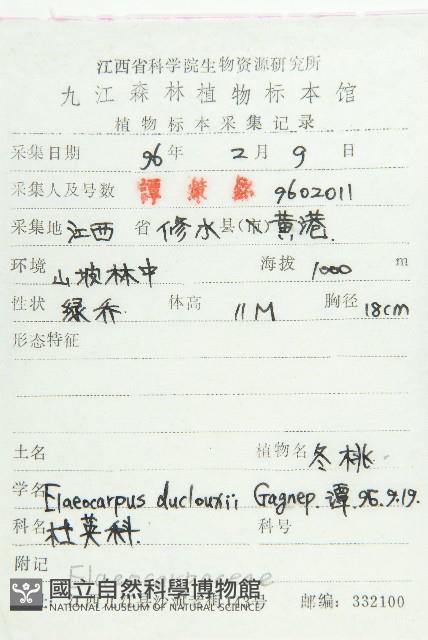 江西省科学院生物资源研究所
九江森林植物标本馆
植物标本采集记录
采集日期 96 年 2 月 9 日
采集人及号数 譚策銘 9602011
采集地 江西 省 修水 县(市) 黄港.
环境 山坡林中 海拔 1000 m
性状 绿乔 体高 11M 胸径 18cm
形态特征
土名 植物名 冬桃
学名 Elaeocarpus duclouxii Gagnep. 譚.96.9.19.
科名 杜英科. 科号
附记 Elaeocarpaceae
國立自然科學博物館
NATIONAL MUSEUM OF NATURAL SCIENCE
邮编: 332100